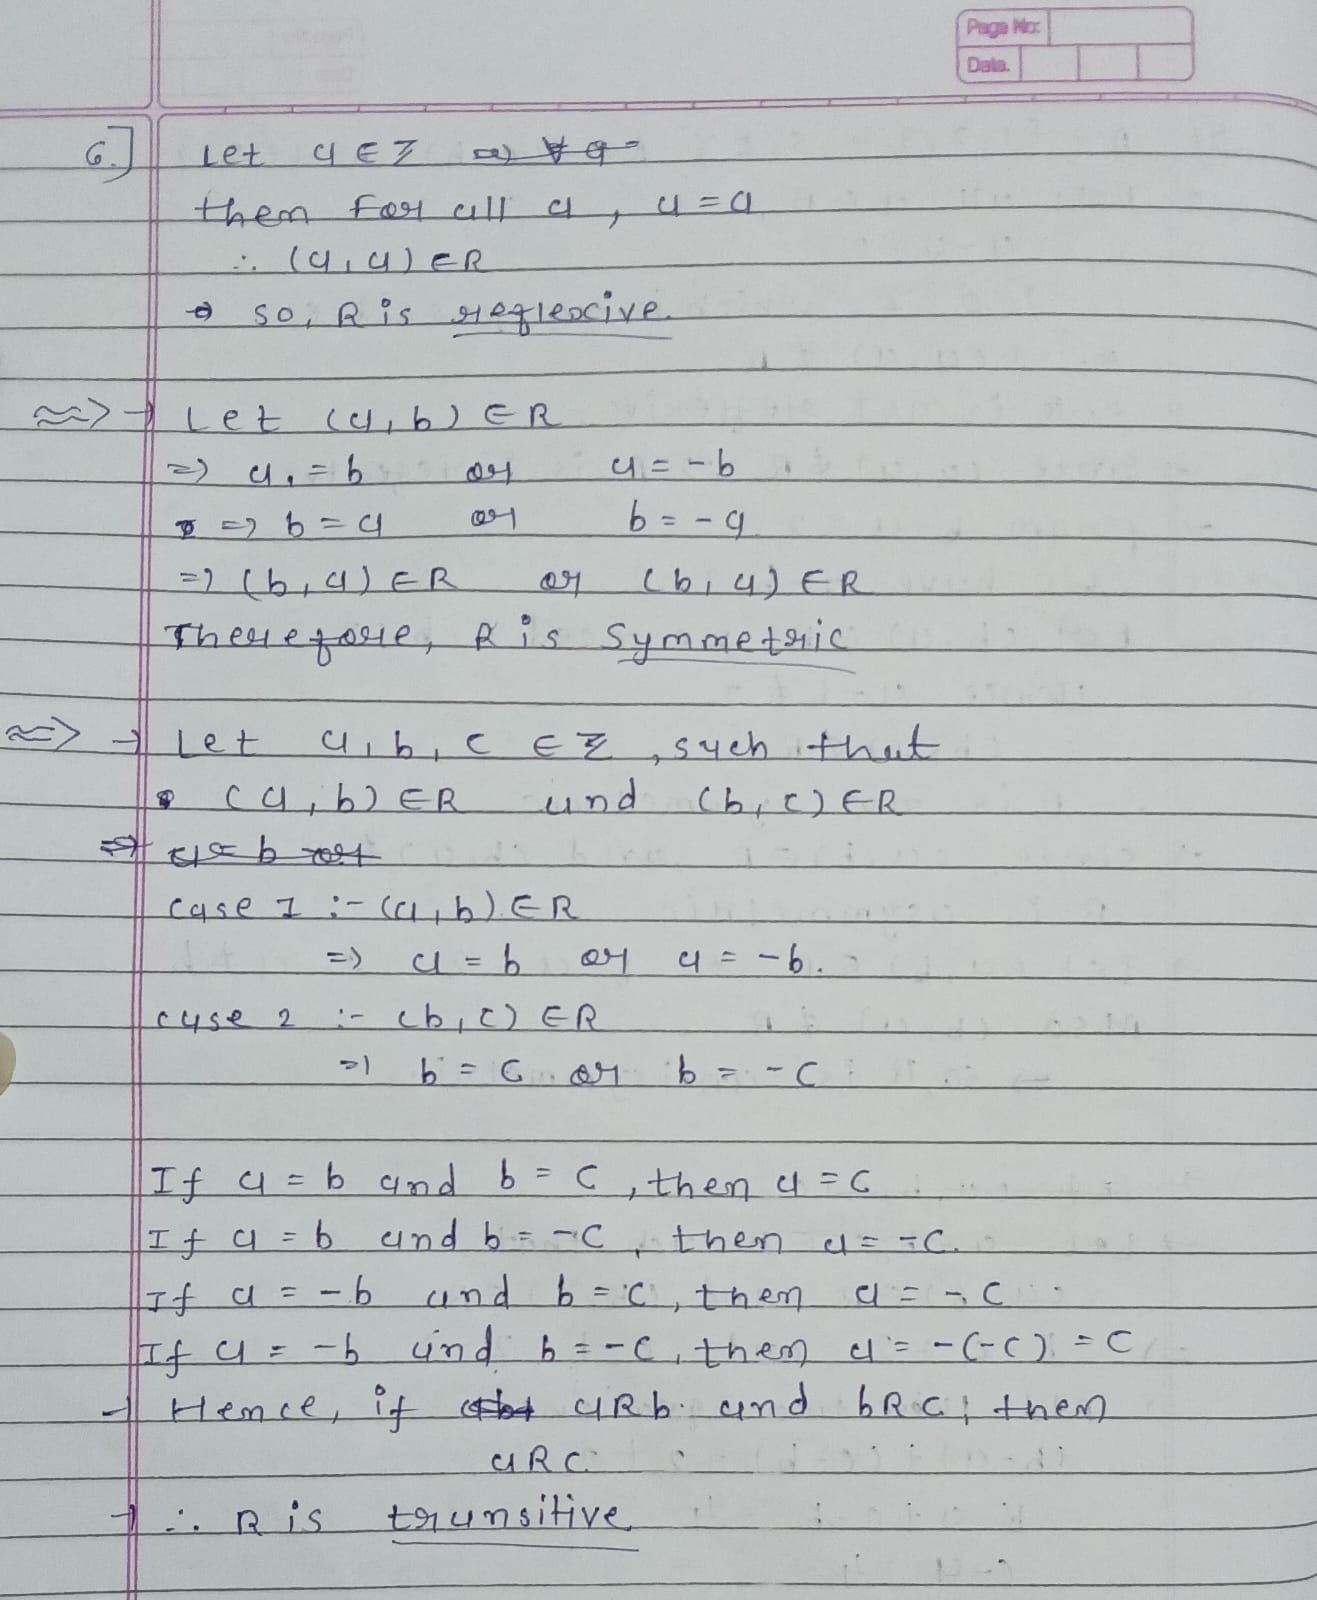 Page No:
Date.
6.] Let a ∈ Z
then for all a, a = a
∴ (a, a) ∈ R
so, R is reflexive.
≈> → Let (a, b) ∈ R
=> a = b or a = -b
=> b = a or b = -a
=> (b, a) ∈ R or (b, a) ∈ R
Therefore, R is symmetric
≈> → Let a, b, c ∈ Z, such that
(a, b) ∈ R and (b, c) ∈ R
=> a = b or
case 1 :- (a, b) ∈ R
=> a = b or a = -b.
case 2 :- (b, c) ∈ R
=> b = c or b = -c
If a = b and b = c, then a = c
If a = b and b = -c, then a = -c.
If a = -b and b = c, then a = -c
If a = -b and b = -c, then a = -(-c) = c
→ Hence, if aRb and bRc, then
aRc
→ ∴ R is transitive